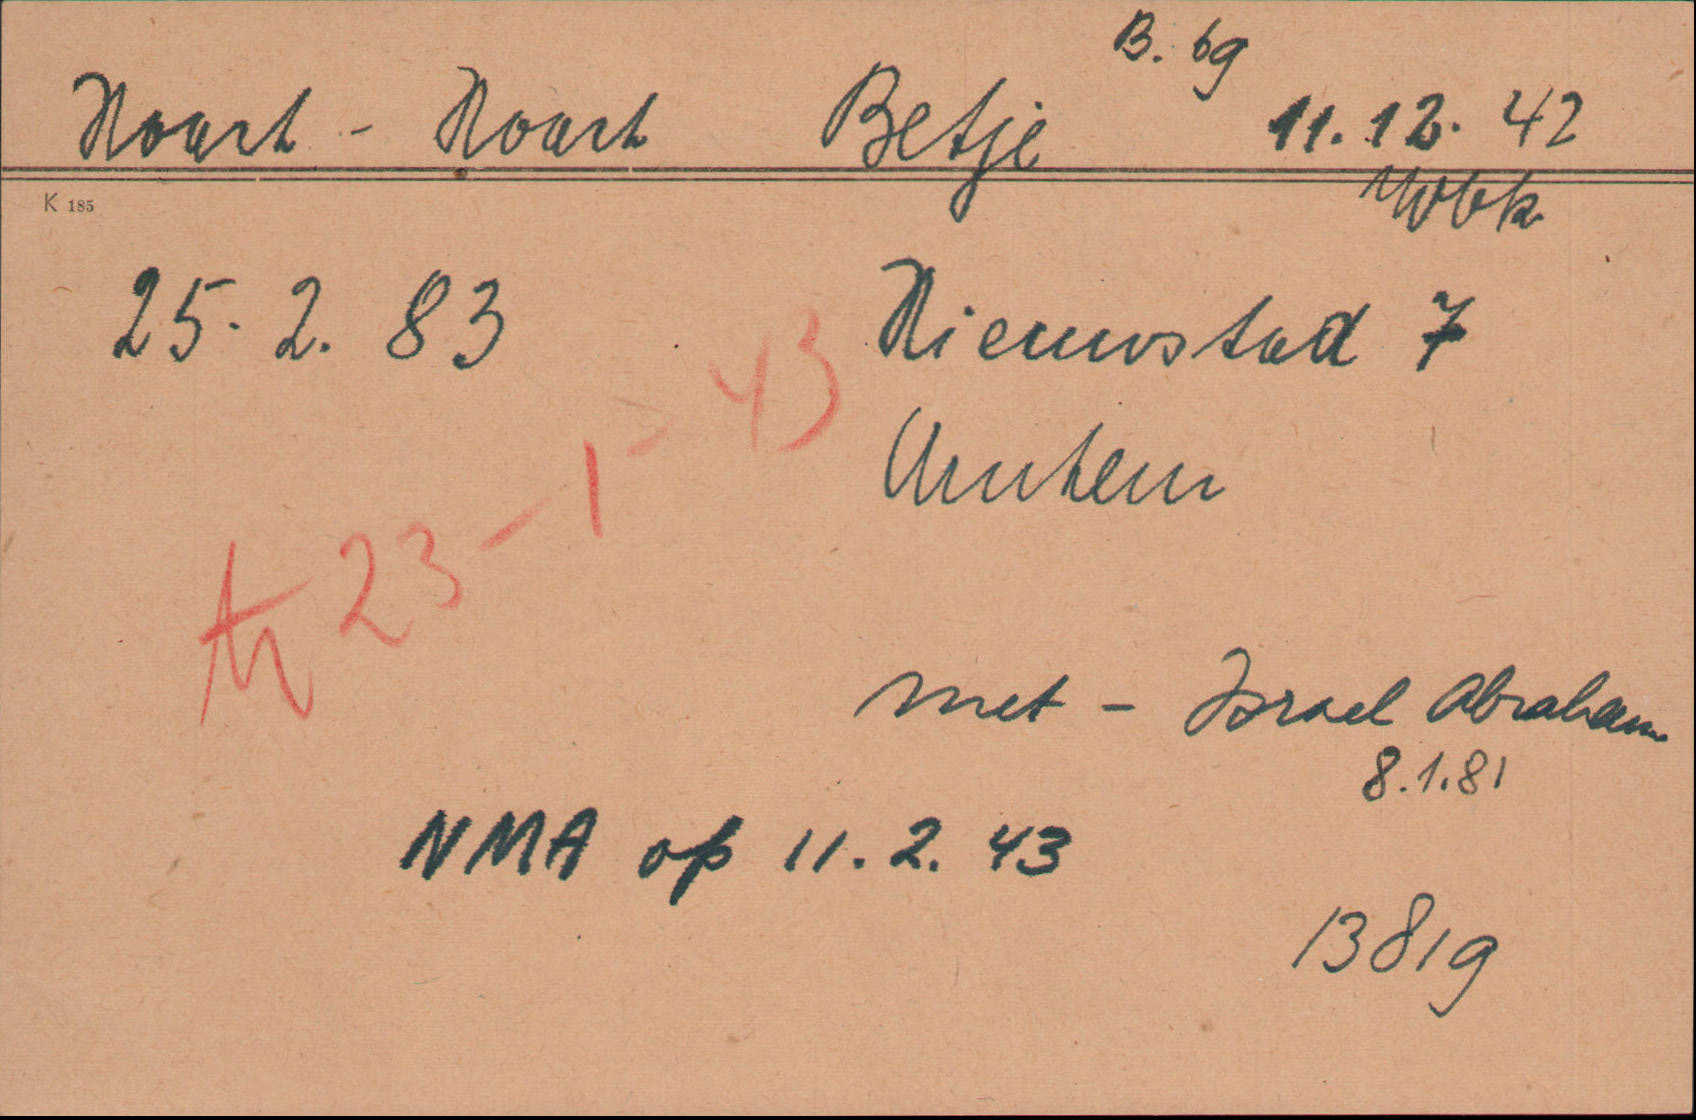 B. 69
Noach - Noach Betje 11.12.42
Wbk
K 185
25.2.83 Nieuwstad 7
Arnhem
tr 23-1-43
met - Israel Abraham
8.1.81
NMA op 11.2.43
13819